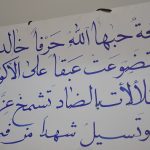 حبها الله حرفا خالد
تضوعت عبقا على الأكو
تلألأت بالضاد تشمخ عز
وتسيل شهدا من ف